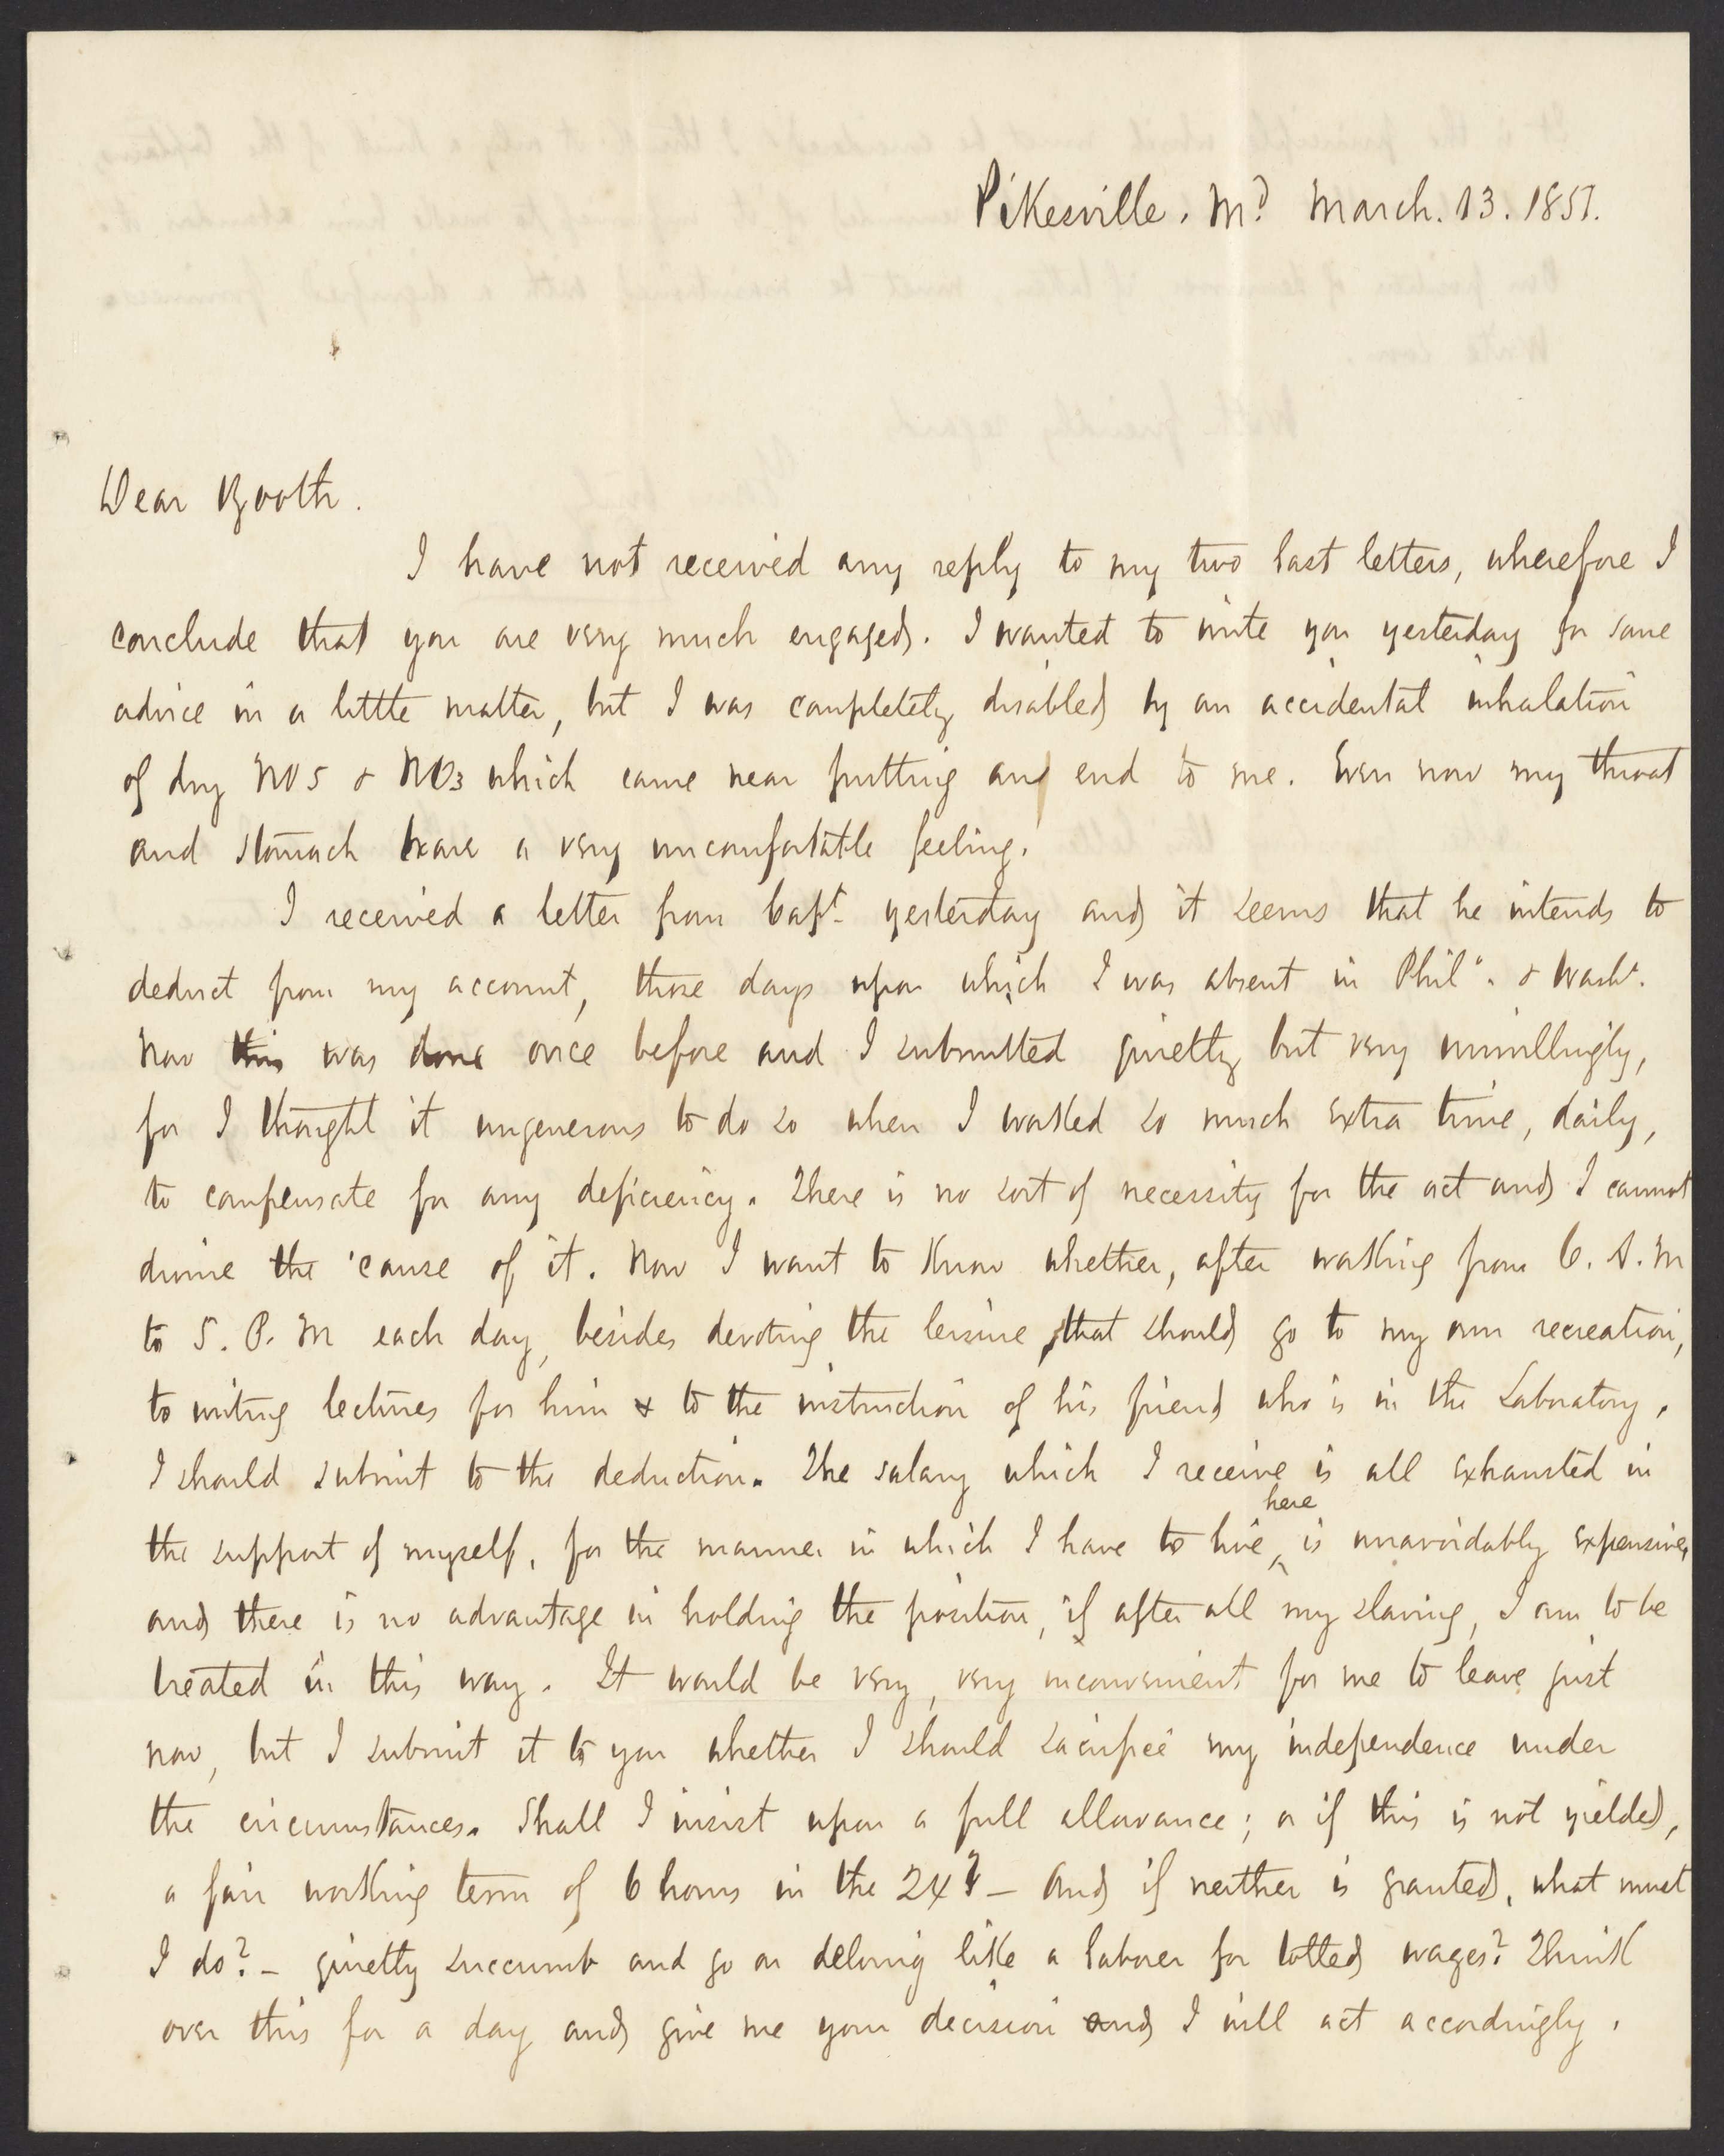 Pikesville. Md March. 13. 1851.
Dear Booth.
I have not received any reply to my two last letters, wherefore I
conclude that you are very much engaged. I wanted to write you yesterday for some
advice in a little matter, but I was completely disabled by an accidental inhalation
of dry NO5 & NO3 which came near putting an end to me. Even now my throat
and stomach have a very uncomfortable feeling.
I received a letter from Capt. yesterday and it seems that he intends to
deduct from my account, those days upon which I was absent in Phila. & Washn.
Now this was done once before and I submitted quietly but very unwillingly,
for I thought it ungenerous to do so when I worked so much extra time, daily,
to compensate for any deficiency. There is no sort of necessity for the act and I cannot
divine the cause of it. Now I want to know whether, after working from 6. A. M
to 5. P. M each day, besides devoting the leisure that should go to my own recreation,
to writing lectures for him & to the instruction of his friend who is in the Laboratory,
I should submit to the deduction. The salary which I receive is all exhausted in
the support of myself, for the manner in which I have to live here is unavoidably expensive,
and there is no advantage in holding the position, if after all my slaving, I am to be
treated in this way. It would be very, very inconvenient for me to leave just
now, but I submit it to you whether I should sacrifice my independence under
the circumstances. Shall I insist upon a full allowance; or if this is not yielded,
a fair working term of 6 hours in the 24? – And if neither is granted, what must
I do? – quietly succumb and go on delving like a laborer for lotted wages? Think
over this for a day and give me your decision and I will act accordingly.